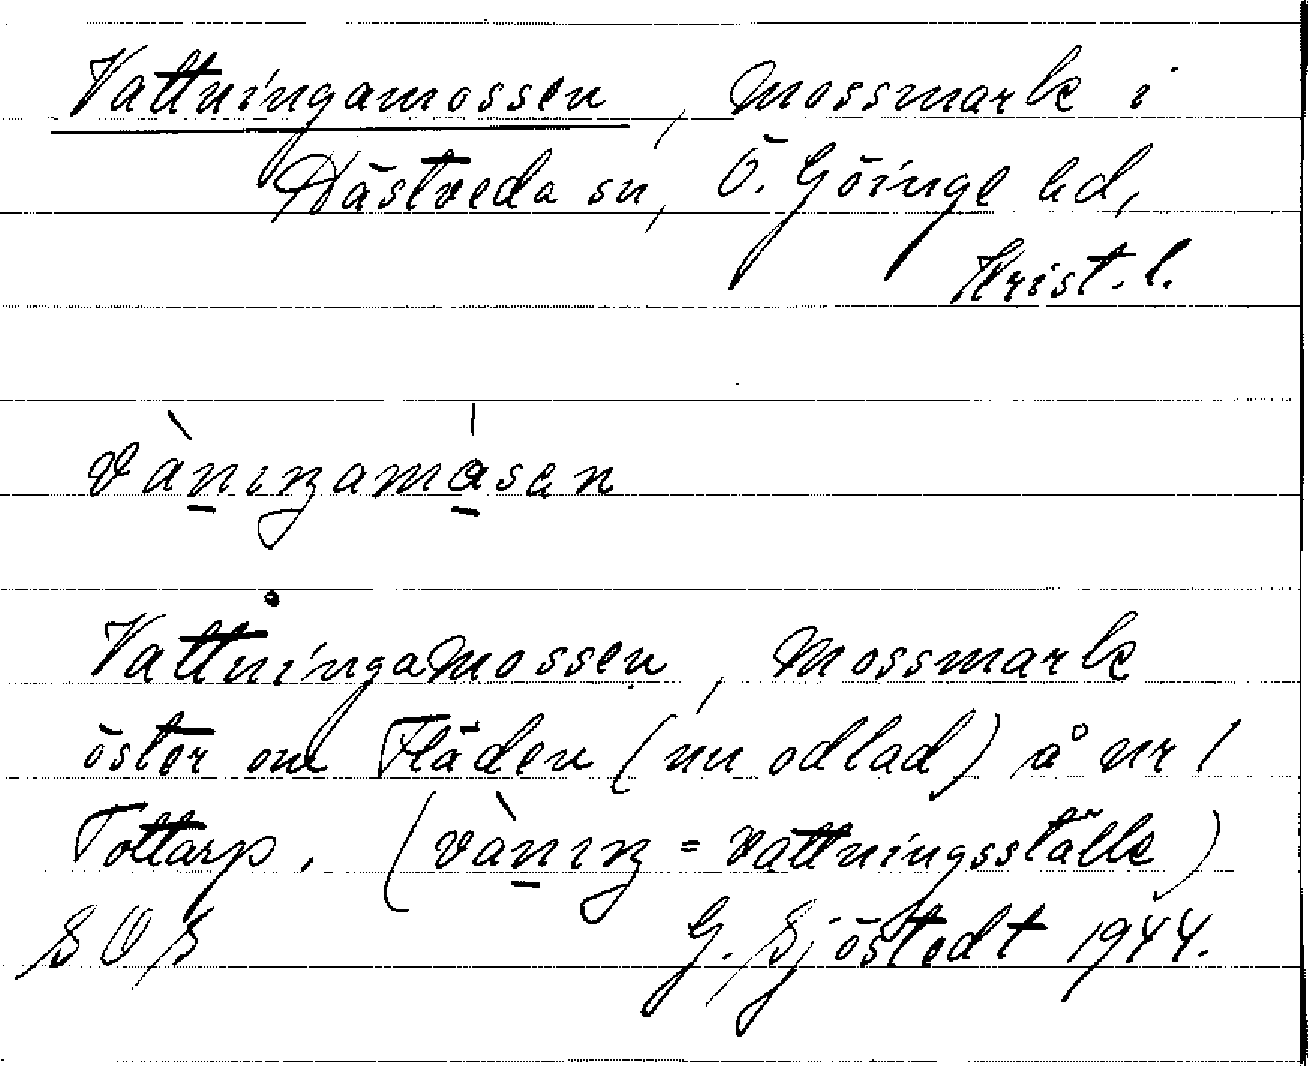 Vattningamossen, mossmark i
Hästveda sn, Ö. Göinge hd,
Krist. l.
vàn̠ıŋamå̠sen
Vattningamossen, mossmark
öster om Fläden (nu odlad) å nr 1
Tottarp. (vàn̠ıŋ = vattningsställe)
SOS G. Sjöstedt 1944.